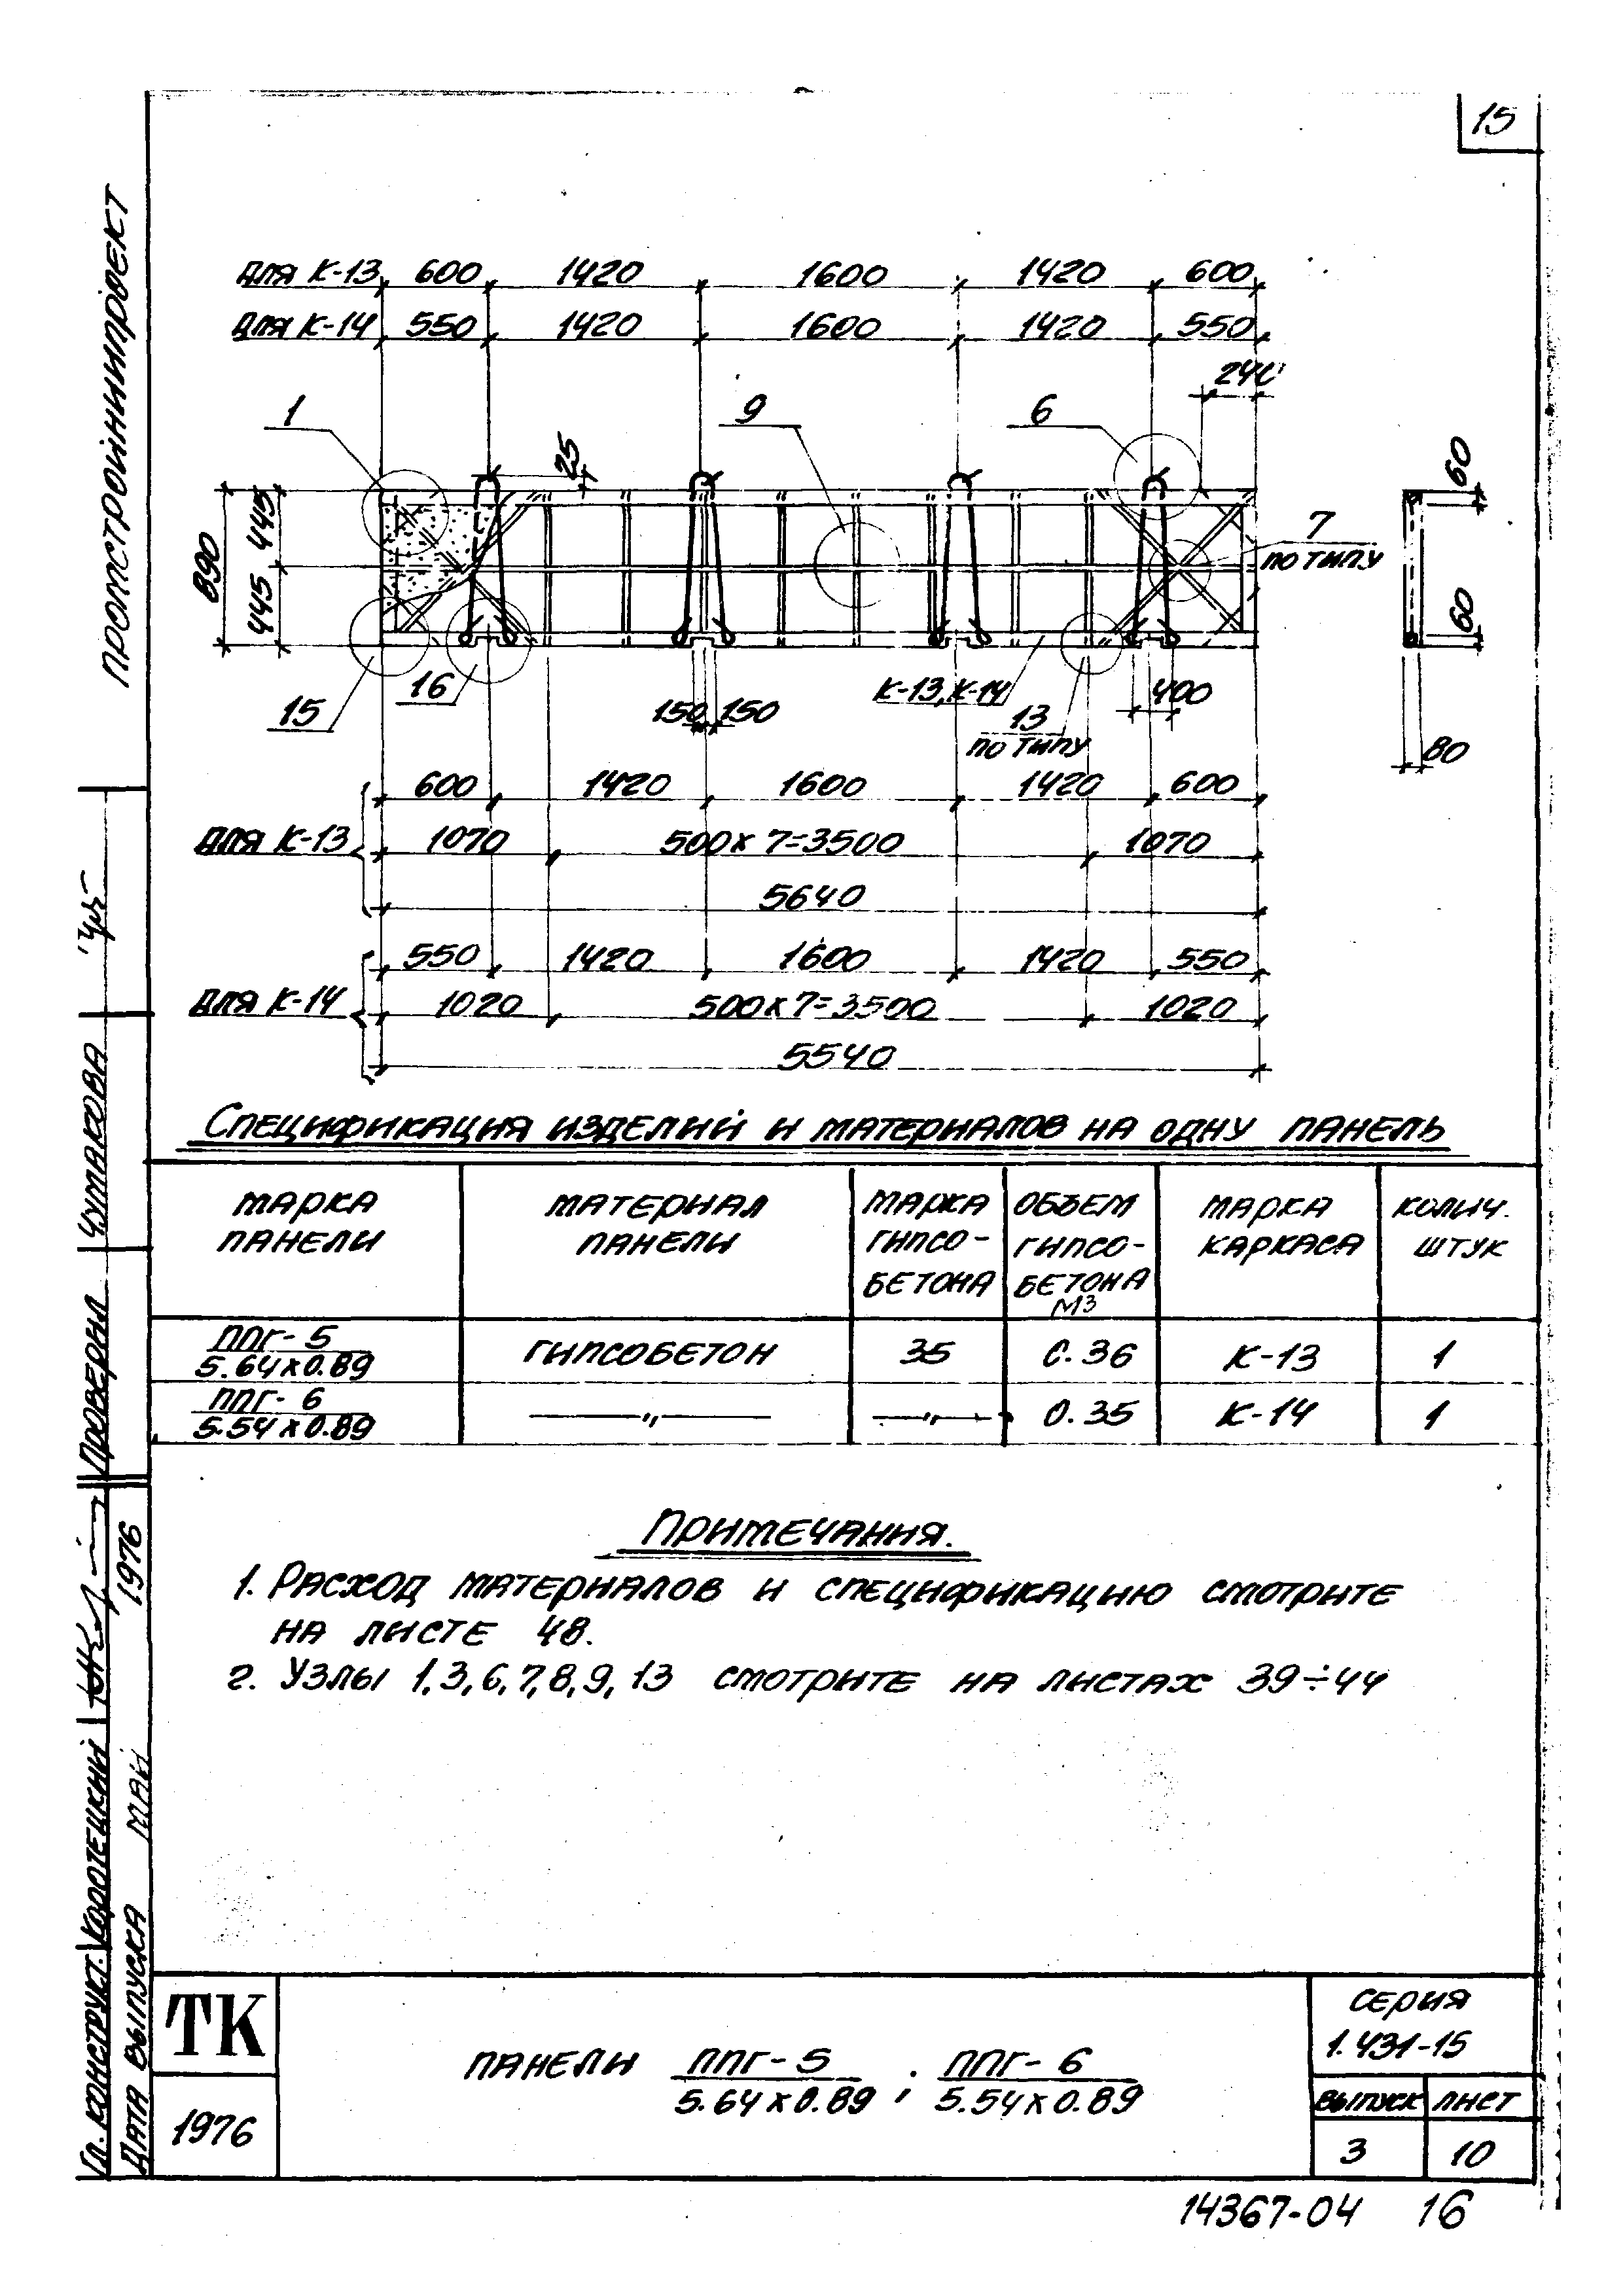 15
ПРОМСТРОЙНИИПРОЕКТ
ДЛЯ К-13 600 1420 1600 1420 600
ДЛЯ К-14 550 1420 1600 1420 550
240
1 9 6
25
60
445
890
7
ПО ТИПУ
445
60
15 16
К-13, К-14
400
150 150
13
ПО ТИПУ
80
600 1420 1600 1420 600
ДЛЯ К-13 1070 500х7=3500 1070
5640
550 1420 1600 1420 550
ДЛЯ К-14 1020 500х7=3500 1020
5540
СПЕЦИФИКАЦИЯ ИЗДЕЛИЙ И МАТЕРИАЛОВ НА ОДНУ ПАНЕЛЬ
МАРКА ПАНЕЛИ МАТЕРИАЛ ПАНЕЛИ МАРКА ГИПСО-БЕТОНА ОБЪЕМ ГИПСО-БЕТОНА М3 МАРКА КАРКАСА КОЛИЧ. ШТУК
ППГ-5
5.64х0.89 ГИПСОБЕТОН 35 0.36 К-13 1
ППГ-6
5.54х0.89 —„— —„— 0.35 К-14 1
ПРИМЕЧАНИЯ.
1. РАСХОД МАТЕРИАЛОВ И СПЕЦИФИКАЦИЮ СМОТРИТЕ
НА ЛИСТЕ 48.
2. УЗЛЫ 1, 3, 6, 7, 8, 9, 13 СМОТРИТЕ НА ЛИСТАХ 39÷44
Гл. КОНСТРУКТ. КОРОТЕЦКИЙ
ПРОВЕРИЛ ЧУМАКОВА
ДАТА ВЫПУСКА МАЙ 1976
ТК
1976
ПАНЕЛИ ППГ-5 ; ППГ-6
5.64х0.89 , 5.54х0.89
СЕРИЯ
1.431-15
ВЫПУСК ЛИСТ
3 10
14367-04 16